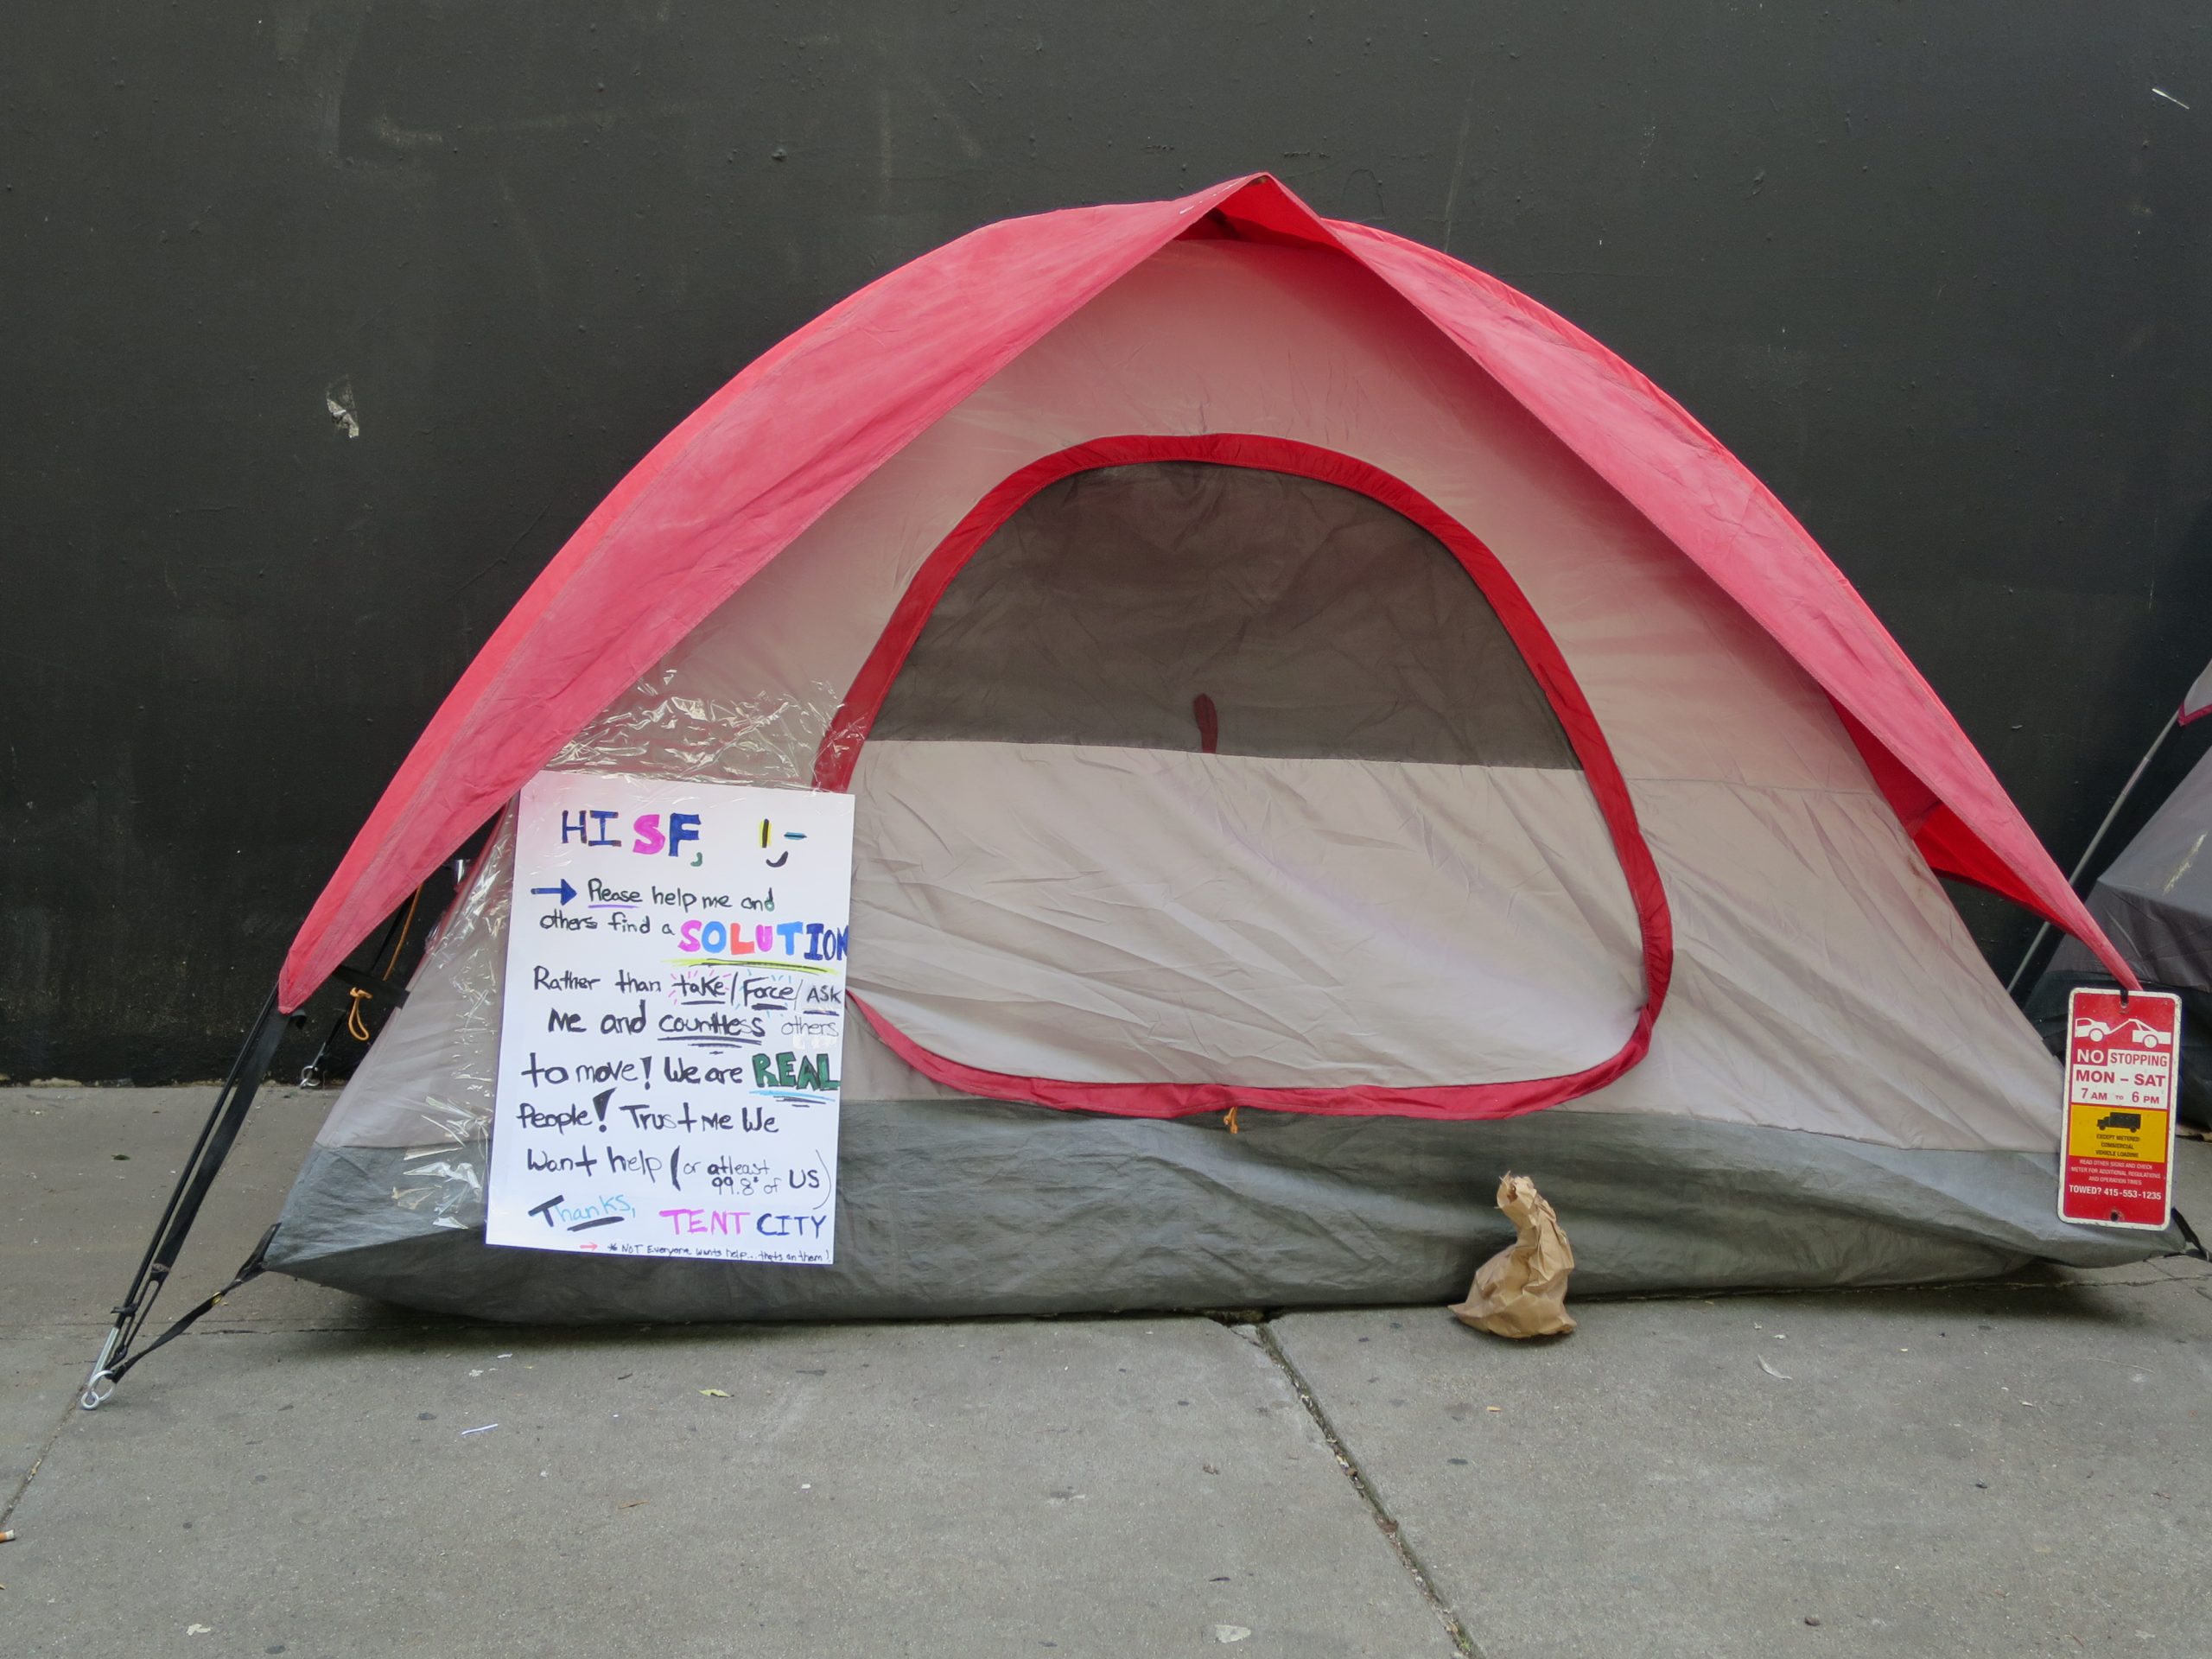 HI SF,
Please help me and
others find a SOLUTION
Rather than take/Force/ASK
Me and countless others
to move! We are REAL
People! Trust Me We
Want help (or atleast
99.8% of US)
Thanks, TENT CITY
* NOT Everyone wants help... thats on them!
NO STOPPING
MON – SAT
7 AM TO 6 PM
EXCEPT METERED
COMMERCIAL
VEHICLE LOADING
READ OTHER SIGNS AND CHECK
METER FOR ADDITIONAL REGULATIONS
AND OPERATION TIMES
TOWED? 415-553-1235